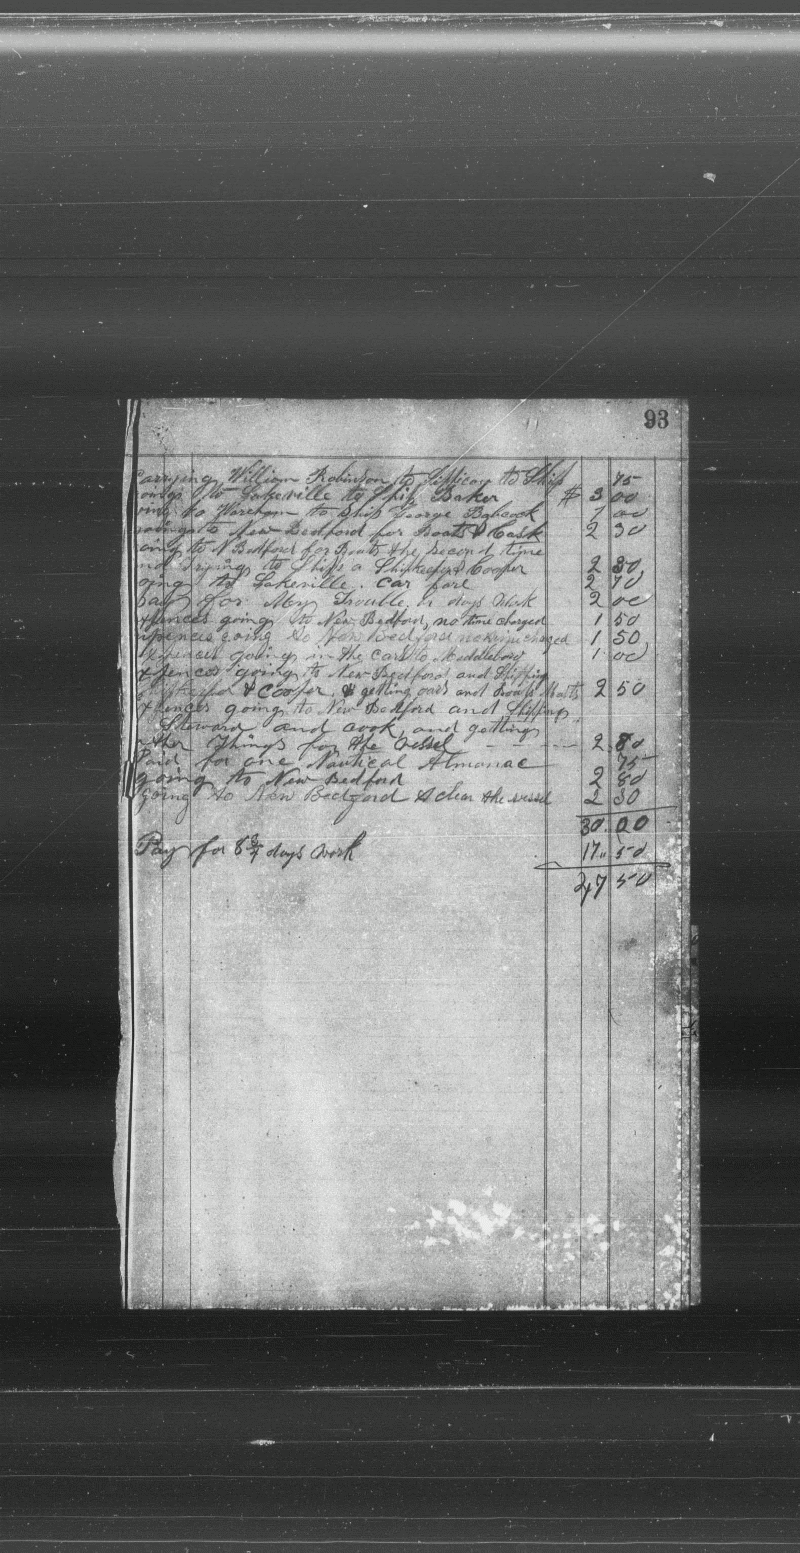 93
Carrying William Robinson to Sippican to Ship 75
oing to Lakeville to Ship Baker $ 3 00
oing to Wareham to Ship George Babcock 1 00
going to New Bedford for Boats & Cask 2 30
oing to N Bedford for Boats the second time
and trying to Ship a Shipkeeper & Cooper 2 30
oing to Lakeville. Car fare 2 70
pay for My Trouble, days Work 2 00
xpences going to New Bedford, no time charged 1 50
xpences going to New Bedford no time charged 1 50
xpences going in the Cars to Middleboro 1 00
xpences going to New Bedford and Shipping
& Cooper, & getting oars and 2 50
xpences going to New Bedford and Shipping
Steward and cook, and getting
other Things for the Vessel 2 80
Paid for one Nautical Almanac 75
going to New Bedford 2 80
going to New Bedford & clear the vessel 2 30
30.00
Pay for 8 3/4 days Work 17.50
47 50